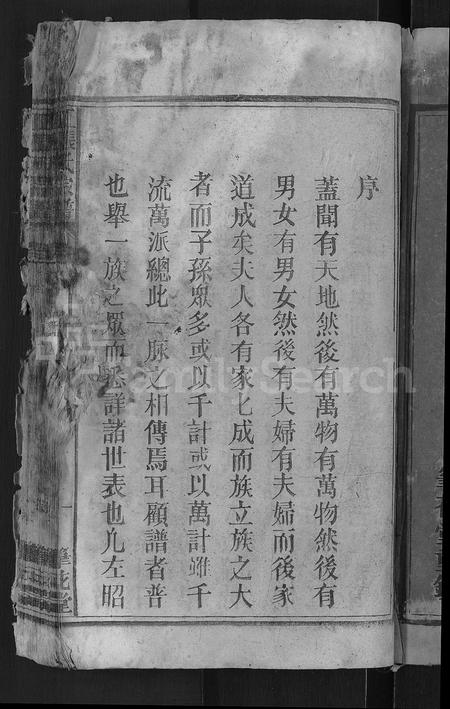 序
蓋聞有天地然後有萬物有萬物然後有
男女有男女然後有夫婦有夫婦而後家
道成矣夫人各有家七成而族立族之大
者而子孫眾多或以千計或以萬計雖千
流萬派總此一脉之相傳焉耳顧譜者普
也舉一族之眾而悉詳諸世表也凡左昭
FamilySearch